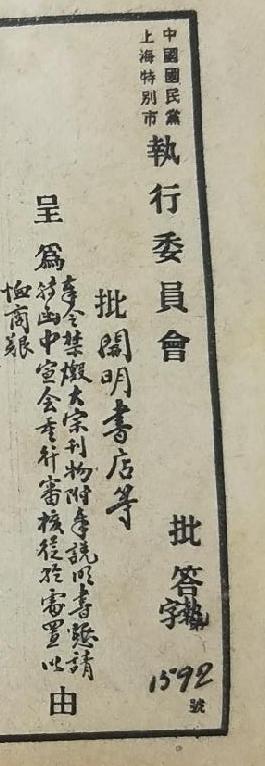 中國國民黨
上海特別市
執行委員會
批答執字1592號
批開明書店等
呈為奉令禁燬大宗刊物附奉說明書懇請
轉函中宣会重行審核從於處置以
恤商艱由